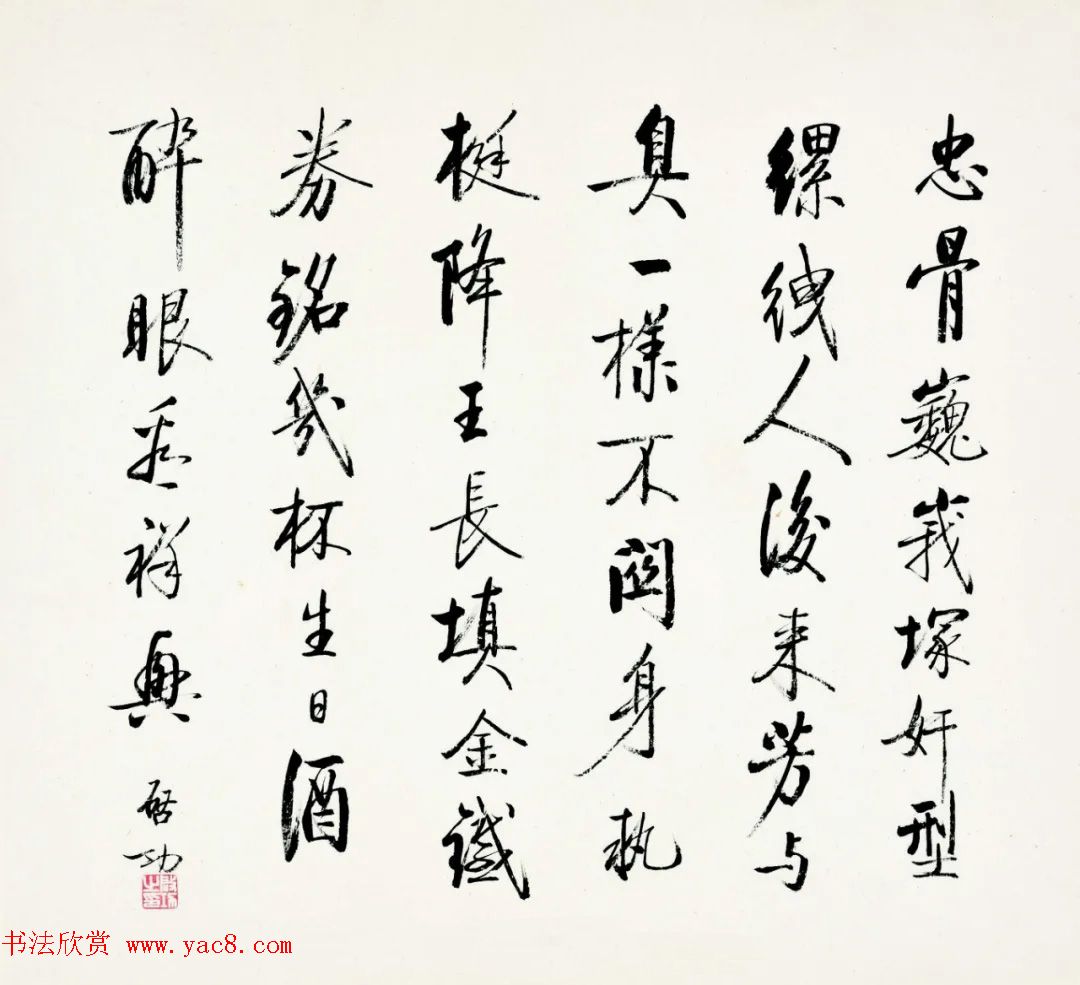 忠骨巍峩塚奸型
縲絏人後来芳与
臭一樣不関身執
梃降王長填金鐵
券銘幾杯生日酒
醉眼看祥興
啓功
啟功之印
书法欣赏 www.yac8.com